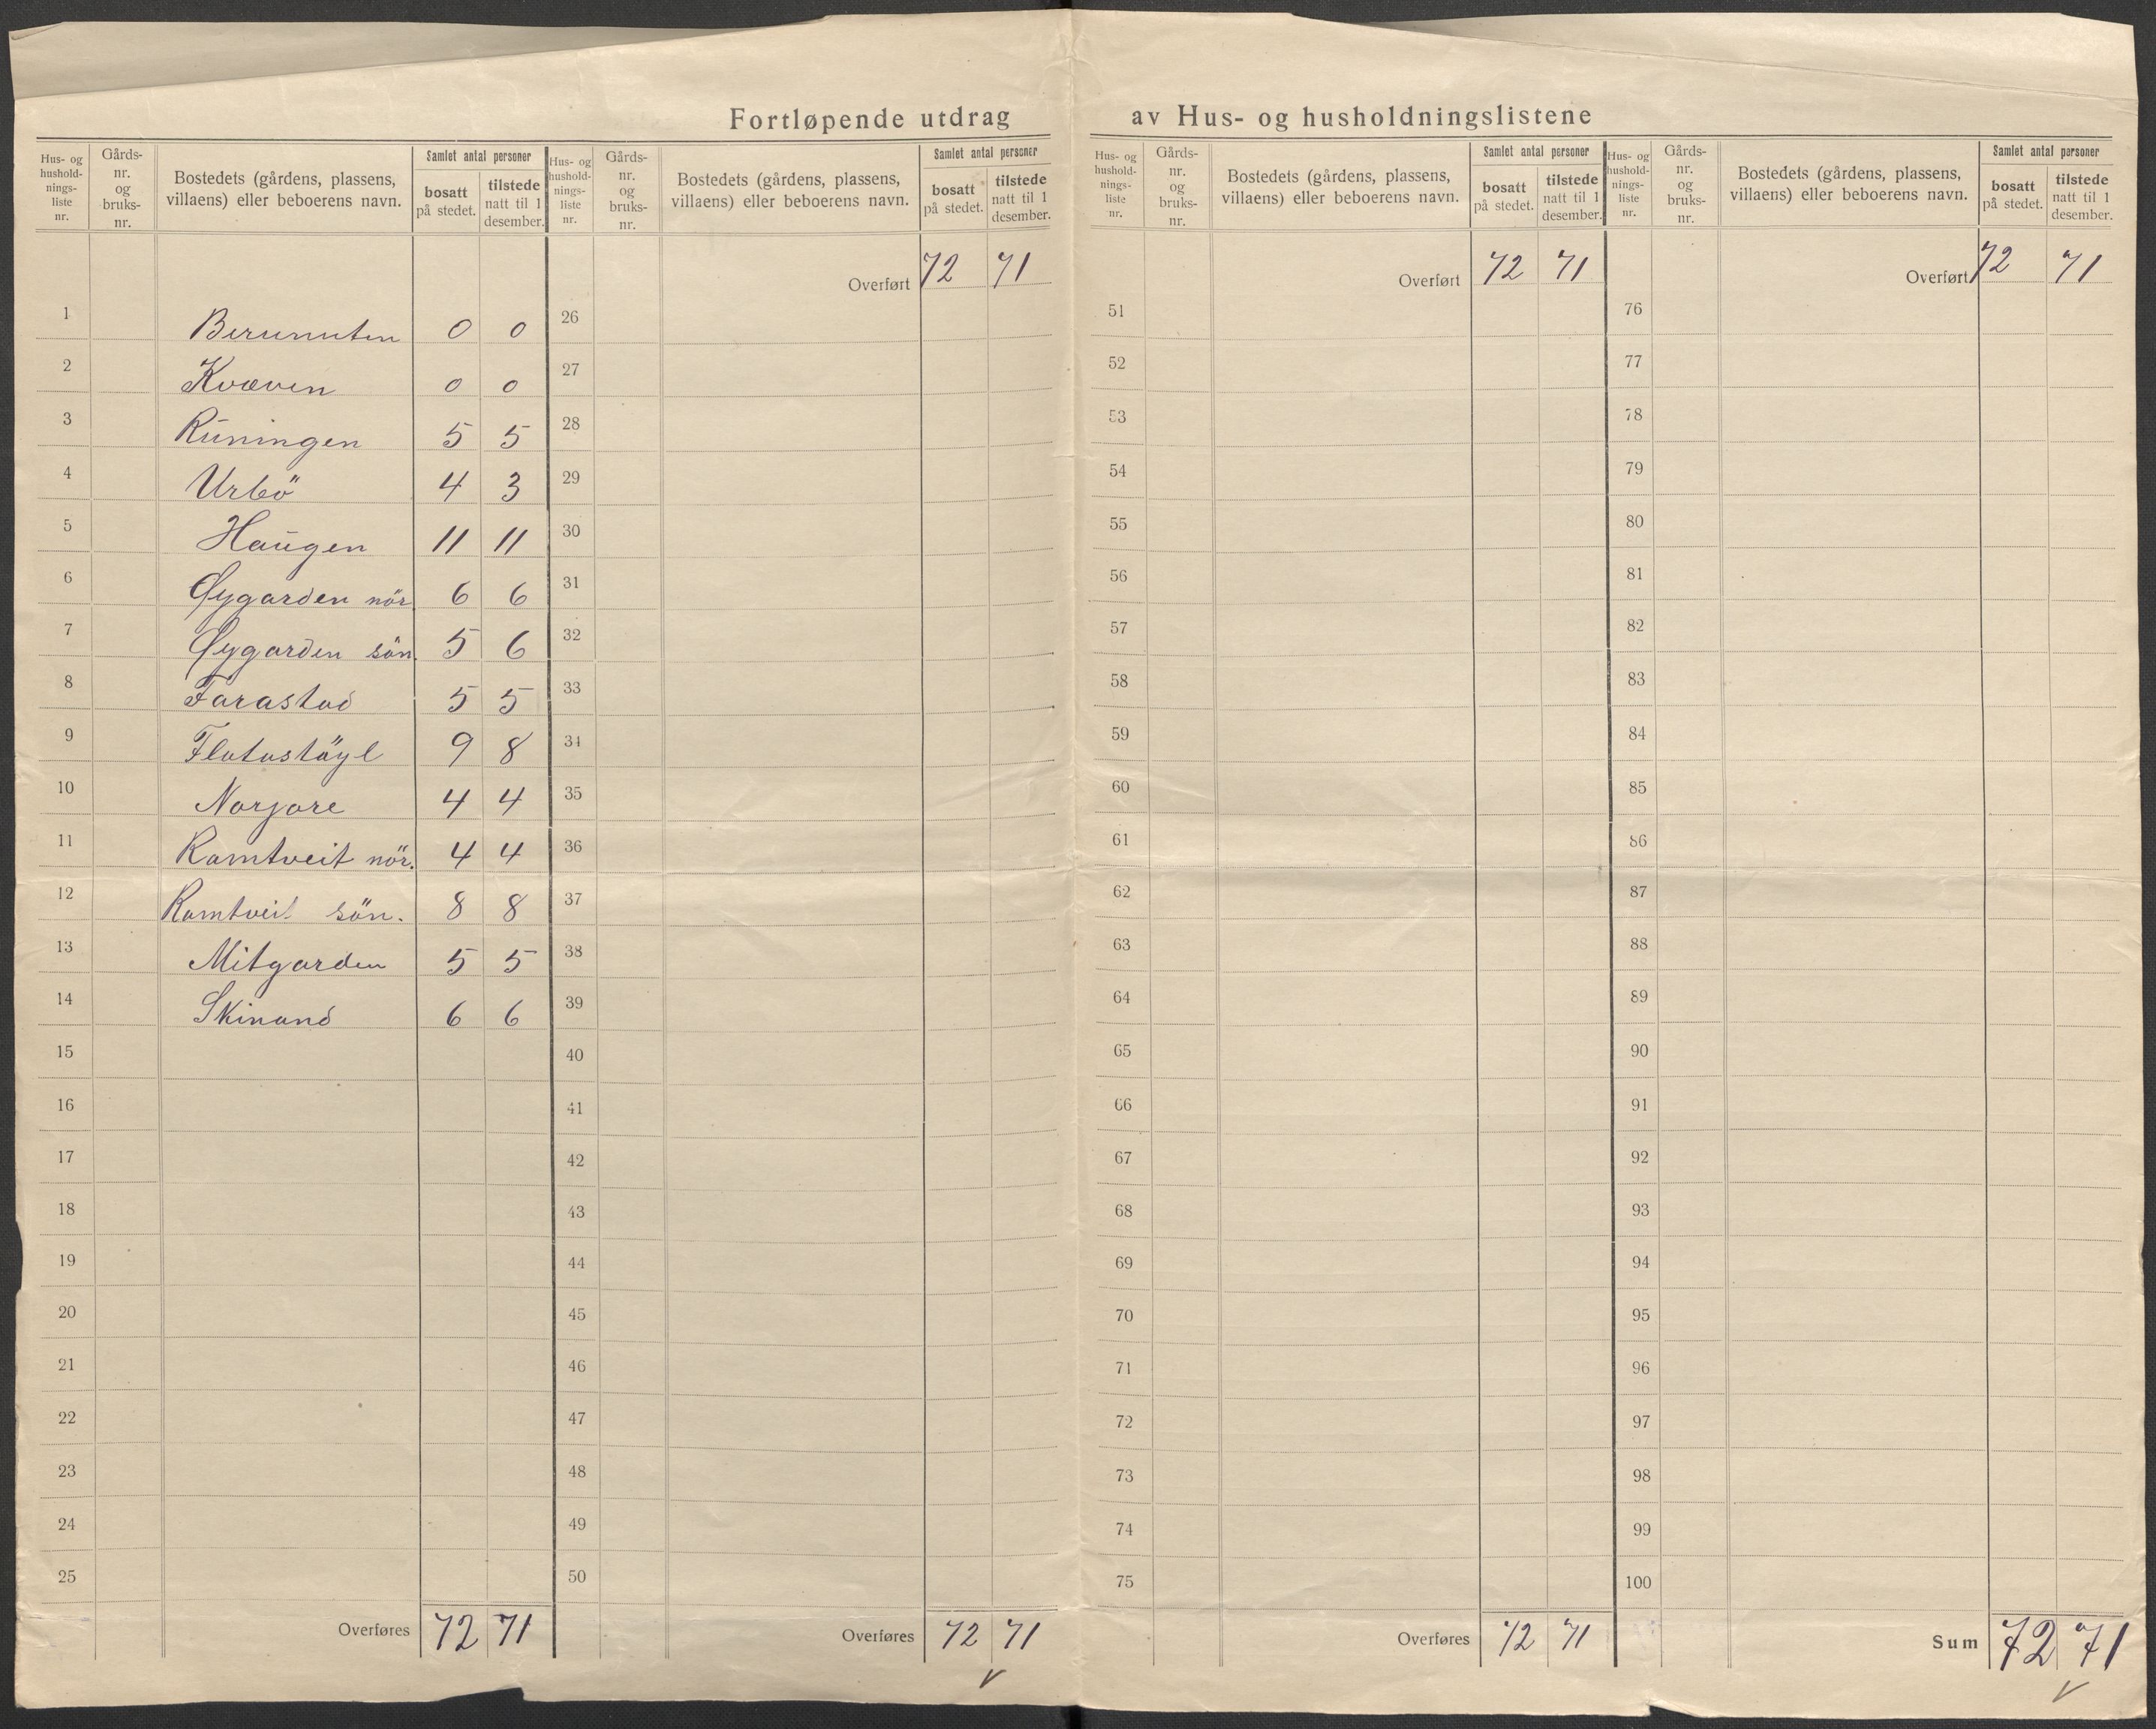 Fortløpende utdrag av Hus- og husholdningslistene
Hus- og hushold- nings- liste nr.
Gårds- nr. og bruks- nr.
Bostedets (gårdens, plassens, villaens) eller beboerens navn.
Samlet antal personer
bosatt på stedet.
tilstede natt til 1 desember.
1 Berunuten 0 0
2 Kvæven 0 0
3 Rūningen 5 5
4 Urbö 4 3
5 Haūgen 11 11
6 Øygarden nör. 6 6
7 Øygarden sön. 5 6
8 Farastad 5 5
9 Flatastöyl 9 8
10 Norjore 4 4
11 Ramtveit nör. 4 4
12 Ramtveit sön. 8 8
13 Mitgarden 5 5
14 Skinand 6 6
15
16
17
18
19
20
21
22
23
24
25
Overføres 72 71
Hus- og hushold- nings- liste nr.
Gårds- nr. og bruks- nr.
Bostedets (gårdens, plassens, villaens) eller beboerens navn.
Samlet antal personer
bosatt på stedet.
tilstede natt til 1 desember.
Overført 72 71
26
27
28
29
30
31
32
33
34
35
36
37
38
39
40
41
42
43
44
45
46
47
48
49
50
Overføres 72 71
Hus- og hushold- nings- liste nr.
Gårds- nr. og bruks- nr.
Bostedets (gårdens, plassens, villaens) eller beboerens navn.
Samlet antal personer
bosatt på stedet.
tilstede natt til 1 desember.
Overført 72 71
51
52
53
54
55
56
57
58
59
60
61
62
63
64
65
66
67
68
69
70
71
72
73
74
75
Overføres 72 71
Hus- og hushold- nings- liste nr.
Gårds- nr. og bruks- nr.
Bostedets (gårdens, plassens, villaens) eller beboerens navn.
Samlet antal personer
bosatt på stedet.
tilstede natt til 1 desember.
Overført 72 71
76
77
78
79
80
81
82
83
84
85
86
87
88
89
90
91
92
93
94
95
96
97
98
99
100
Sum 72 71